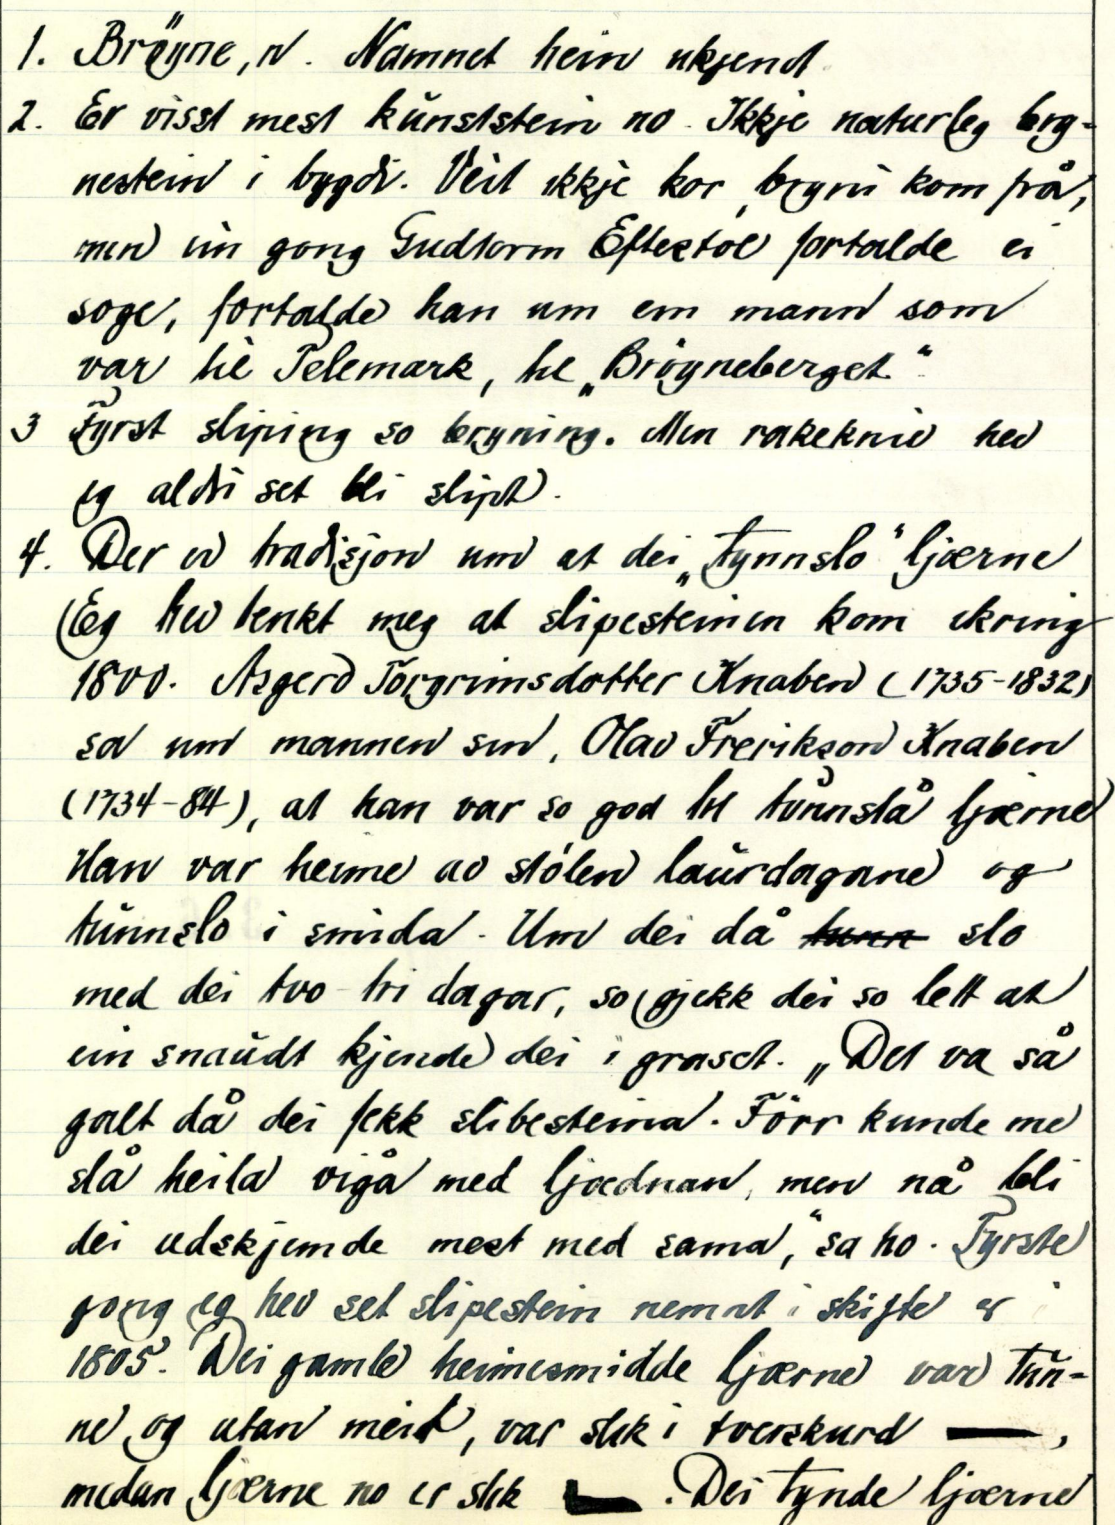 1. Brøyne, n. Namnet hein ukjend
2. Er visst mest kunststein no. Ikkje naturleg bry-
nestein i bygdi. Veit ikkje kor bryni kom frå,
men ein gong Gudtorm Eftestøl fortalde ei
soge, fortalde han um ein mann som
var te Telemark, te „Brøyneberget“
3 Fyrst sliping so bryning. Men rakekniv hev
eg aldri set bli slipt.
4. Der er tradisjon um at dei „tynnslo“ ljærne
(Eg hev tenkt meg at slipesteinen kom ikring
1800. Asgerd Torgrimsdotter Knaben (1735-1832)
sa um mannen sin, Olav Frerikson Knaben
(1734-84), at han var so god te tunnslå ljærne
Han var heime av stølen laurdagane og
tunnslo i smida. Um dei då slo
med dei tvo tri dagar, so gjekk dei so lett at
ein snaudt kjende dei i graset. „Det va så
galt då dei fekk slibesteina. Förr kunde me
slå heila vigå med ljædnan, men nå bli
dei udskjemde mest med sama,“ sa ho. Fyrste
gong eg hev set slipestein nemnt i skifte er i
1805. Dei gamle heimesmidde ljærne var tun-
ne og utan meid, var slik i tverskurd ,
medan ljærne no er slik . Dei tynde ljærne